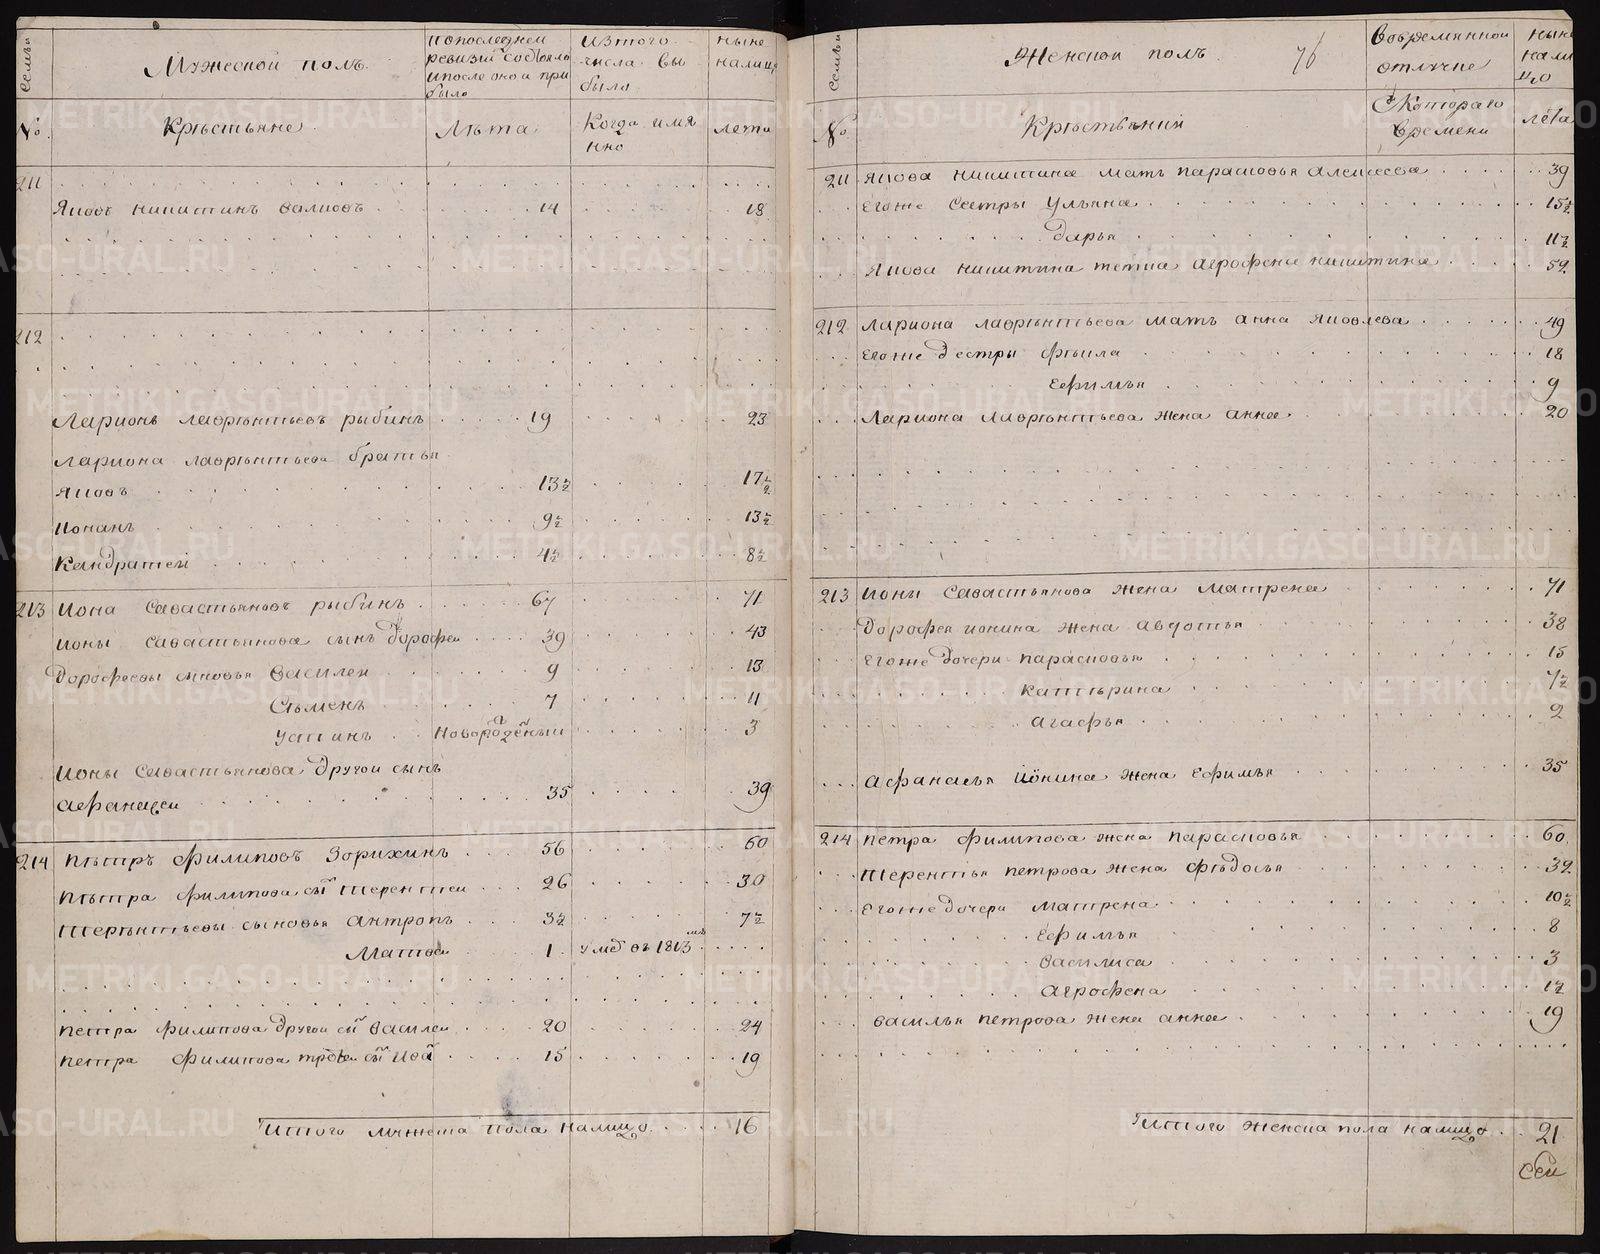 Семьи
Мужеской полъ.
Попоследнем
ревизiи состояло
ипосле оной при
было
Изтого
числа вы
было
ныне
налицо
№.
Крестьяне.
Лѣта.
Когда имя
нно
лета
211
Яковъ никитинъ валковъ 14 18
212
Ларионъ лаврентьевъ рыбинъ 19 23
лариона лаврентьева братья
яковъ 13½ 17½
Ионанъ 9½ 13½
Кандратей 4½ 8½
213 Иона савастьяновъ рыбинъ 67 71
ионы савастьянова сынъ дорофеи 39 43
Дорофеевы сыновья василеи 9 13
Семенъ 7 11
Устинъ Новорожденныи 3
Ионы савастьянова другои сынъ
афанасеи 35 39
214 петръ филиповъ Зорихинъ 56 60
петра филипова сы терентеи 26 30
терентьевы сыновья антропъ 3½ 7½
Матвеи 1 умре въ 1813мъ
петра филипова другои сы василеи 20 24
петра филипова трети сы Ива 15 19
Итого мужеска пола налицо 16
Семьи
Женской полъ. 76
Вовременной
отлучке
ныне
нали
цо
№.
Крестьянки
С Котораго
времени
лета
211 якова никитина мать парасковья алексеева 39
Егоже сестры Ульяна 15½
дарья 11½
якова никитина тетка агрофена никитина 59
212 лариона лаврентьева мать анна яковлева 49
егоже сестры фекла 18
Ефимья 9
лариона лаврентьева жена анна 20
213 ионы савастьянова жена матрена 71
Дорофея ионина жена авдотья 38
егоже дочери парасковья 15
катерина 7½
агафья 2
афанасья ионина жена Ефимья 35
214 петра филипова жена парасковья 60
терентья петрова жена федосья 32
егоже дочери матрена 10½
Ефимья 8
василиса 3
агрофена 1½
василья петрова жена анна 19
Итого женска пола налицо 21
METRIKI.GASO-URAL.RU